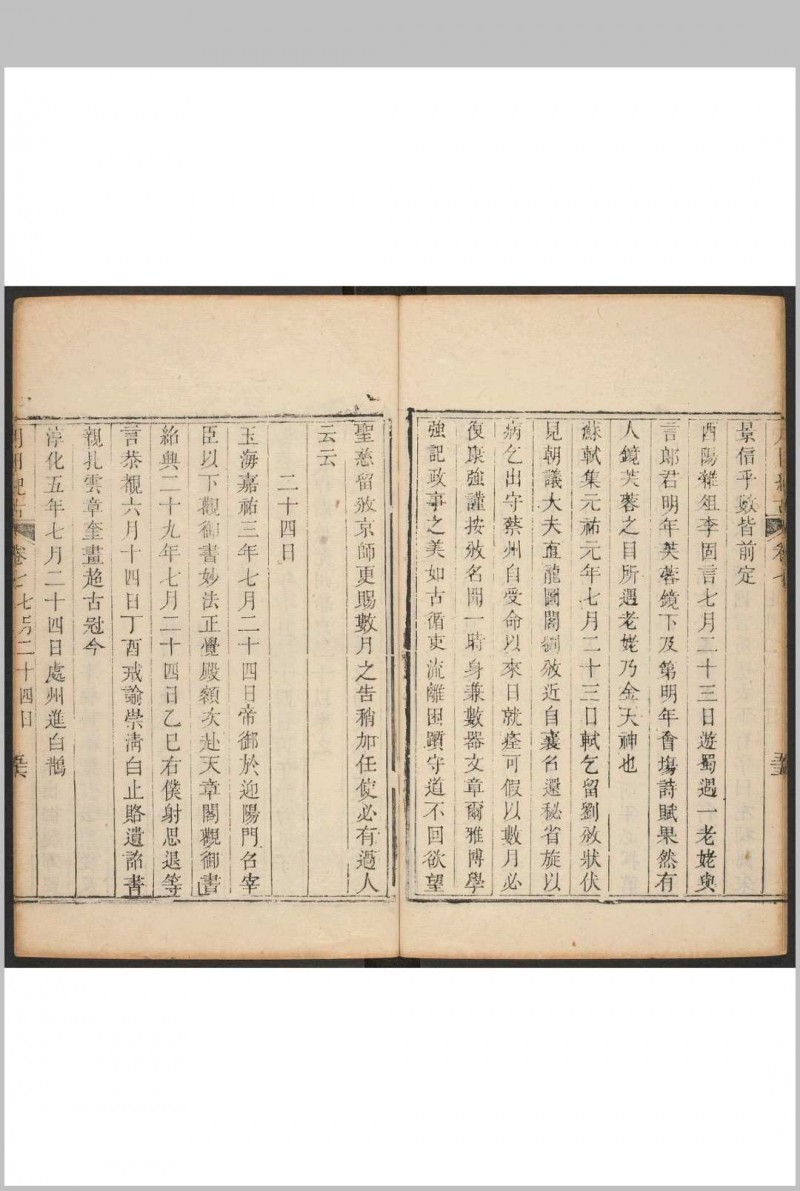 景信乎數皆前定
酉陽雜俎李固言七月二十三日遊蜀遇一老姥與
言郎君明年芙蓉鏡下及第明年會塲詩賦果然有
人鏡芙蓉之目所遇老姥乃金天神也
蘇軾集元祐元年七月二十三日軾乞留劉攽狀伏
見朝議大夫直龍圖閣劉攽近自襄名還秘省旋以
病乞出守蔡州自受命以來日就痊可假以數月必
復康強謹按攽名聞一時身兼數器文章爾雅博學
強記政事之美如古循吏流離困躓守道不回欲望
聖慈留攽京師更賜數月之告稍加任使必有過人
云云
二十四日
玉海嘉祐三年七月二十四日帝御於迎陽門名宰
臣以下觀御書妙法正覺殿額次赴天章閣觀御書
紹興二十九年七月二十四日乙巳右僕射思退等
言恭觀六月十四日丁酉戒諭崇淸白止賂遺詔書
親扎雲章奎畫超古冠今
淳化五年七月二十四日處州進白鵲
月日紀古 卷七七月二十四日